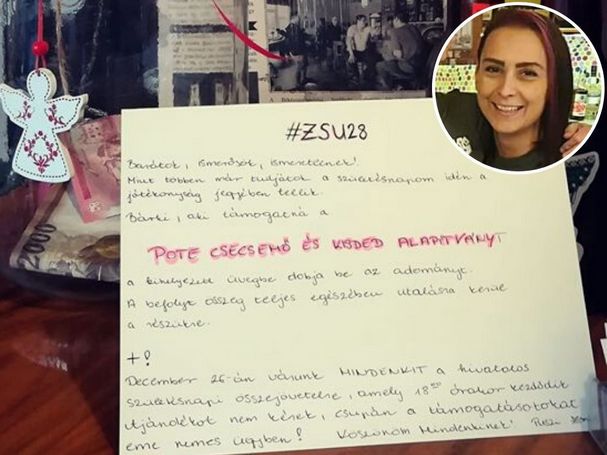 #ZSU28
Barátok, ismerősök, ismeretlenek!
Mint többen már tudjátok a születésnapom idén a
jótékonyság jegyében telik.
Bárki, aki támogatná a
POTE CSECSEMŐ ÉS KISDED ALAPÍTVÁNYT
a kihelyezett üvegbe dobja be az adományt.
A befolyt összeg teljes egészében utalásra kerül
a részükre.
+!
December 26-án várunk MINDENKIT a hivatalos
születésnapi összejövetelre, amely 18⁰⁰ órakor kezdődik
Ajándékot nem kérek, csupán a támogatásotokat
eme nemes ügyben! Köszönöm Mindenkinek! Puszi